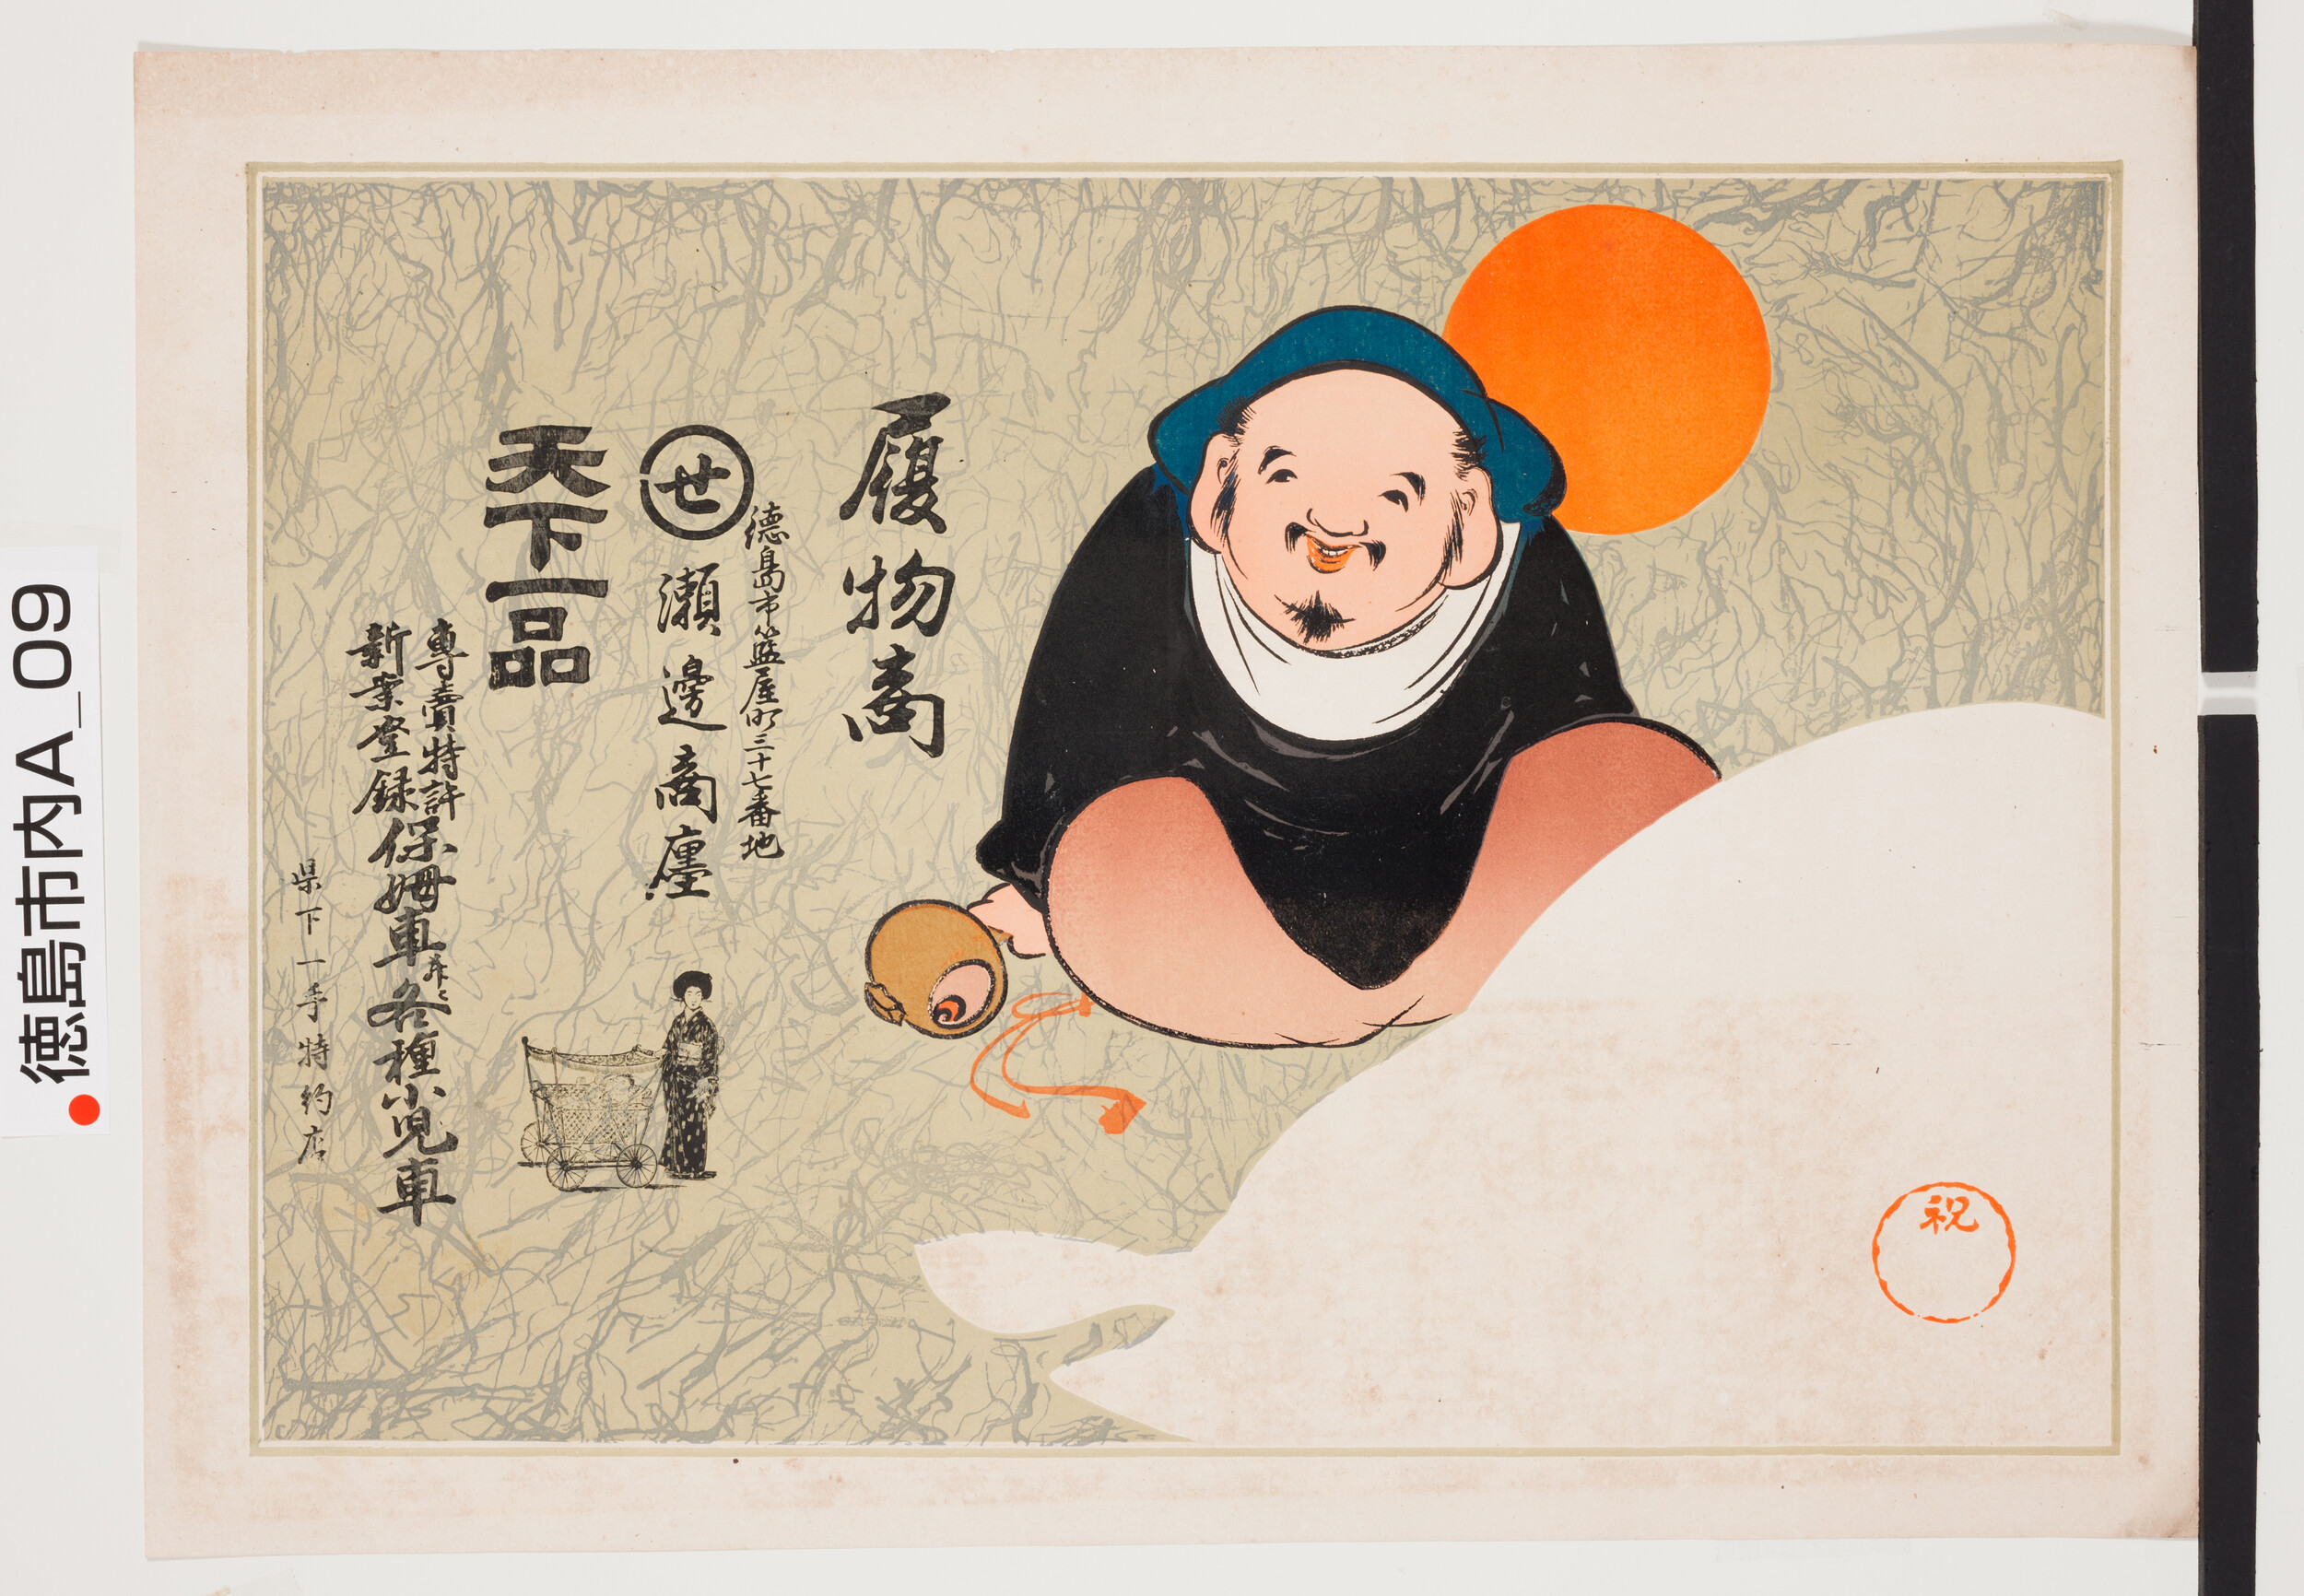 履物商
徳島市籃屋町三十七番地
せ
瀬邊商廛
天下一品
專賣特許
新業登録
保姆車并ニ各種小児車
県下一手特約店
祝
徳島市内A_09